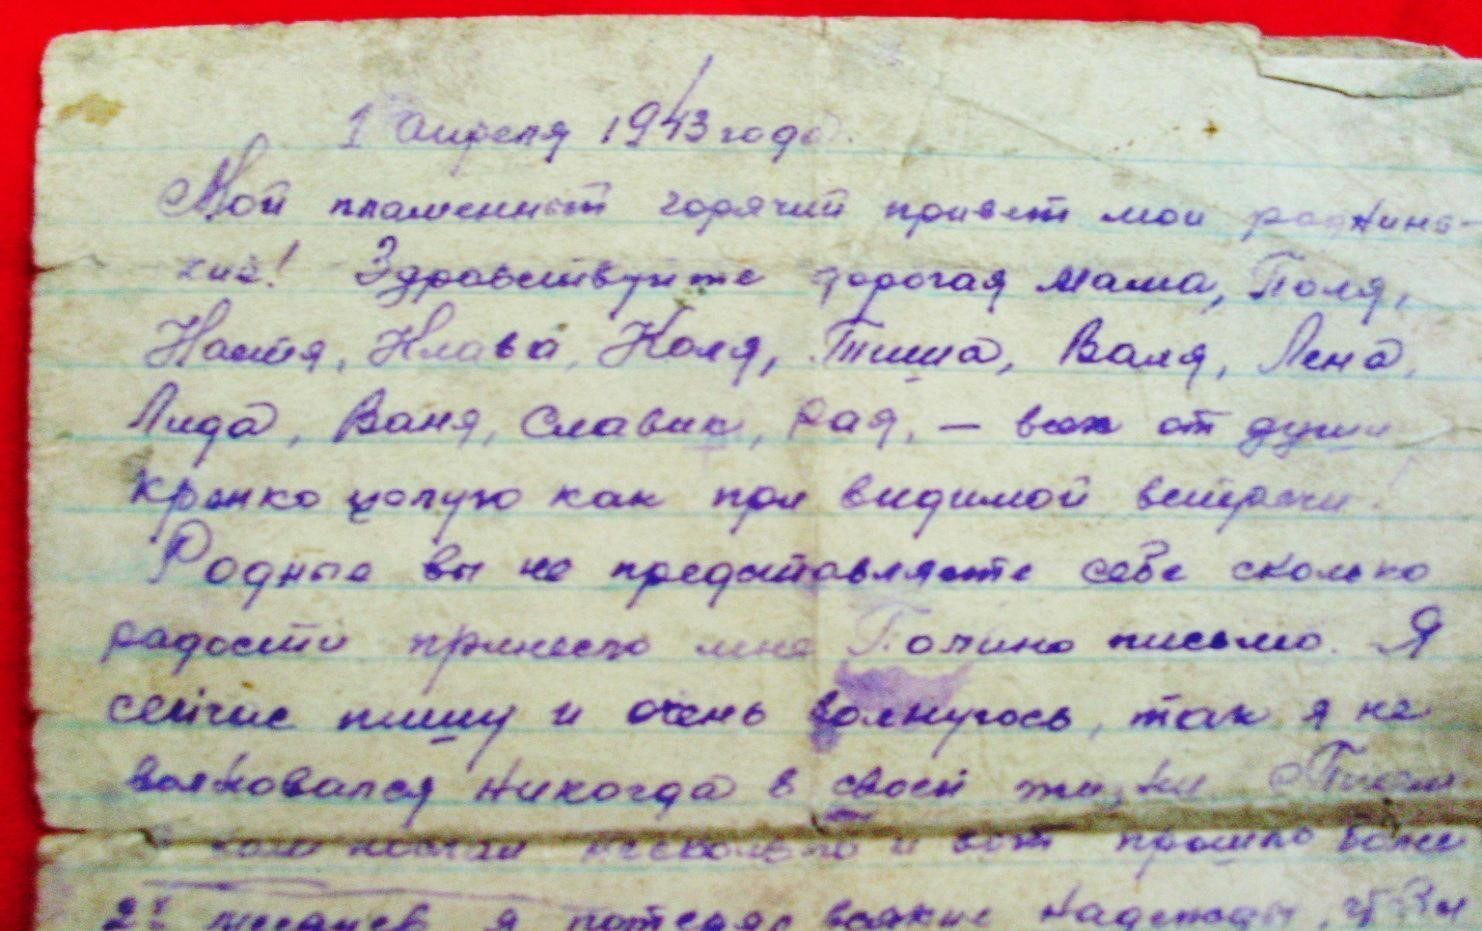 1 апреля 1943 года.
Мой пламенный горячий привет мои роднино-
кие! Здравствуйте дорогая мама, Поля,
Настя, Клава, Коля, Тиша, Валя, Лена,
Лида, Ваня, Славик, Рая, — всех от души
крепко целую как при видимой встречи!
Родные вы не представляете себе сколько
радости принесло мне Полино письмо. Я
сейчас пишу и очень волнуюсь, так я не
волновался никогда в своей жизни Писем
я вам послал несколько и вот прошло более
2х месяцев я потерял всякие надежды, что Вы